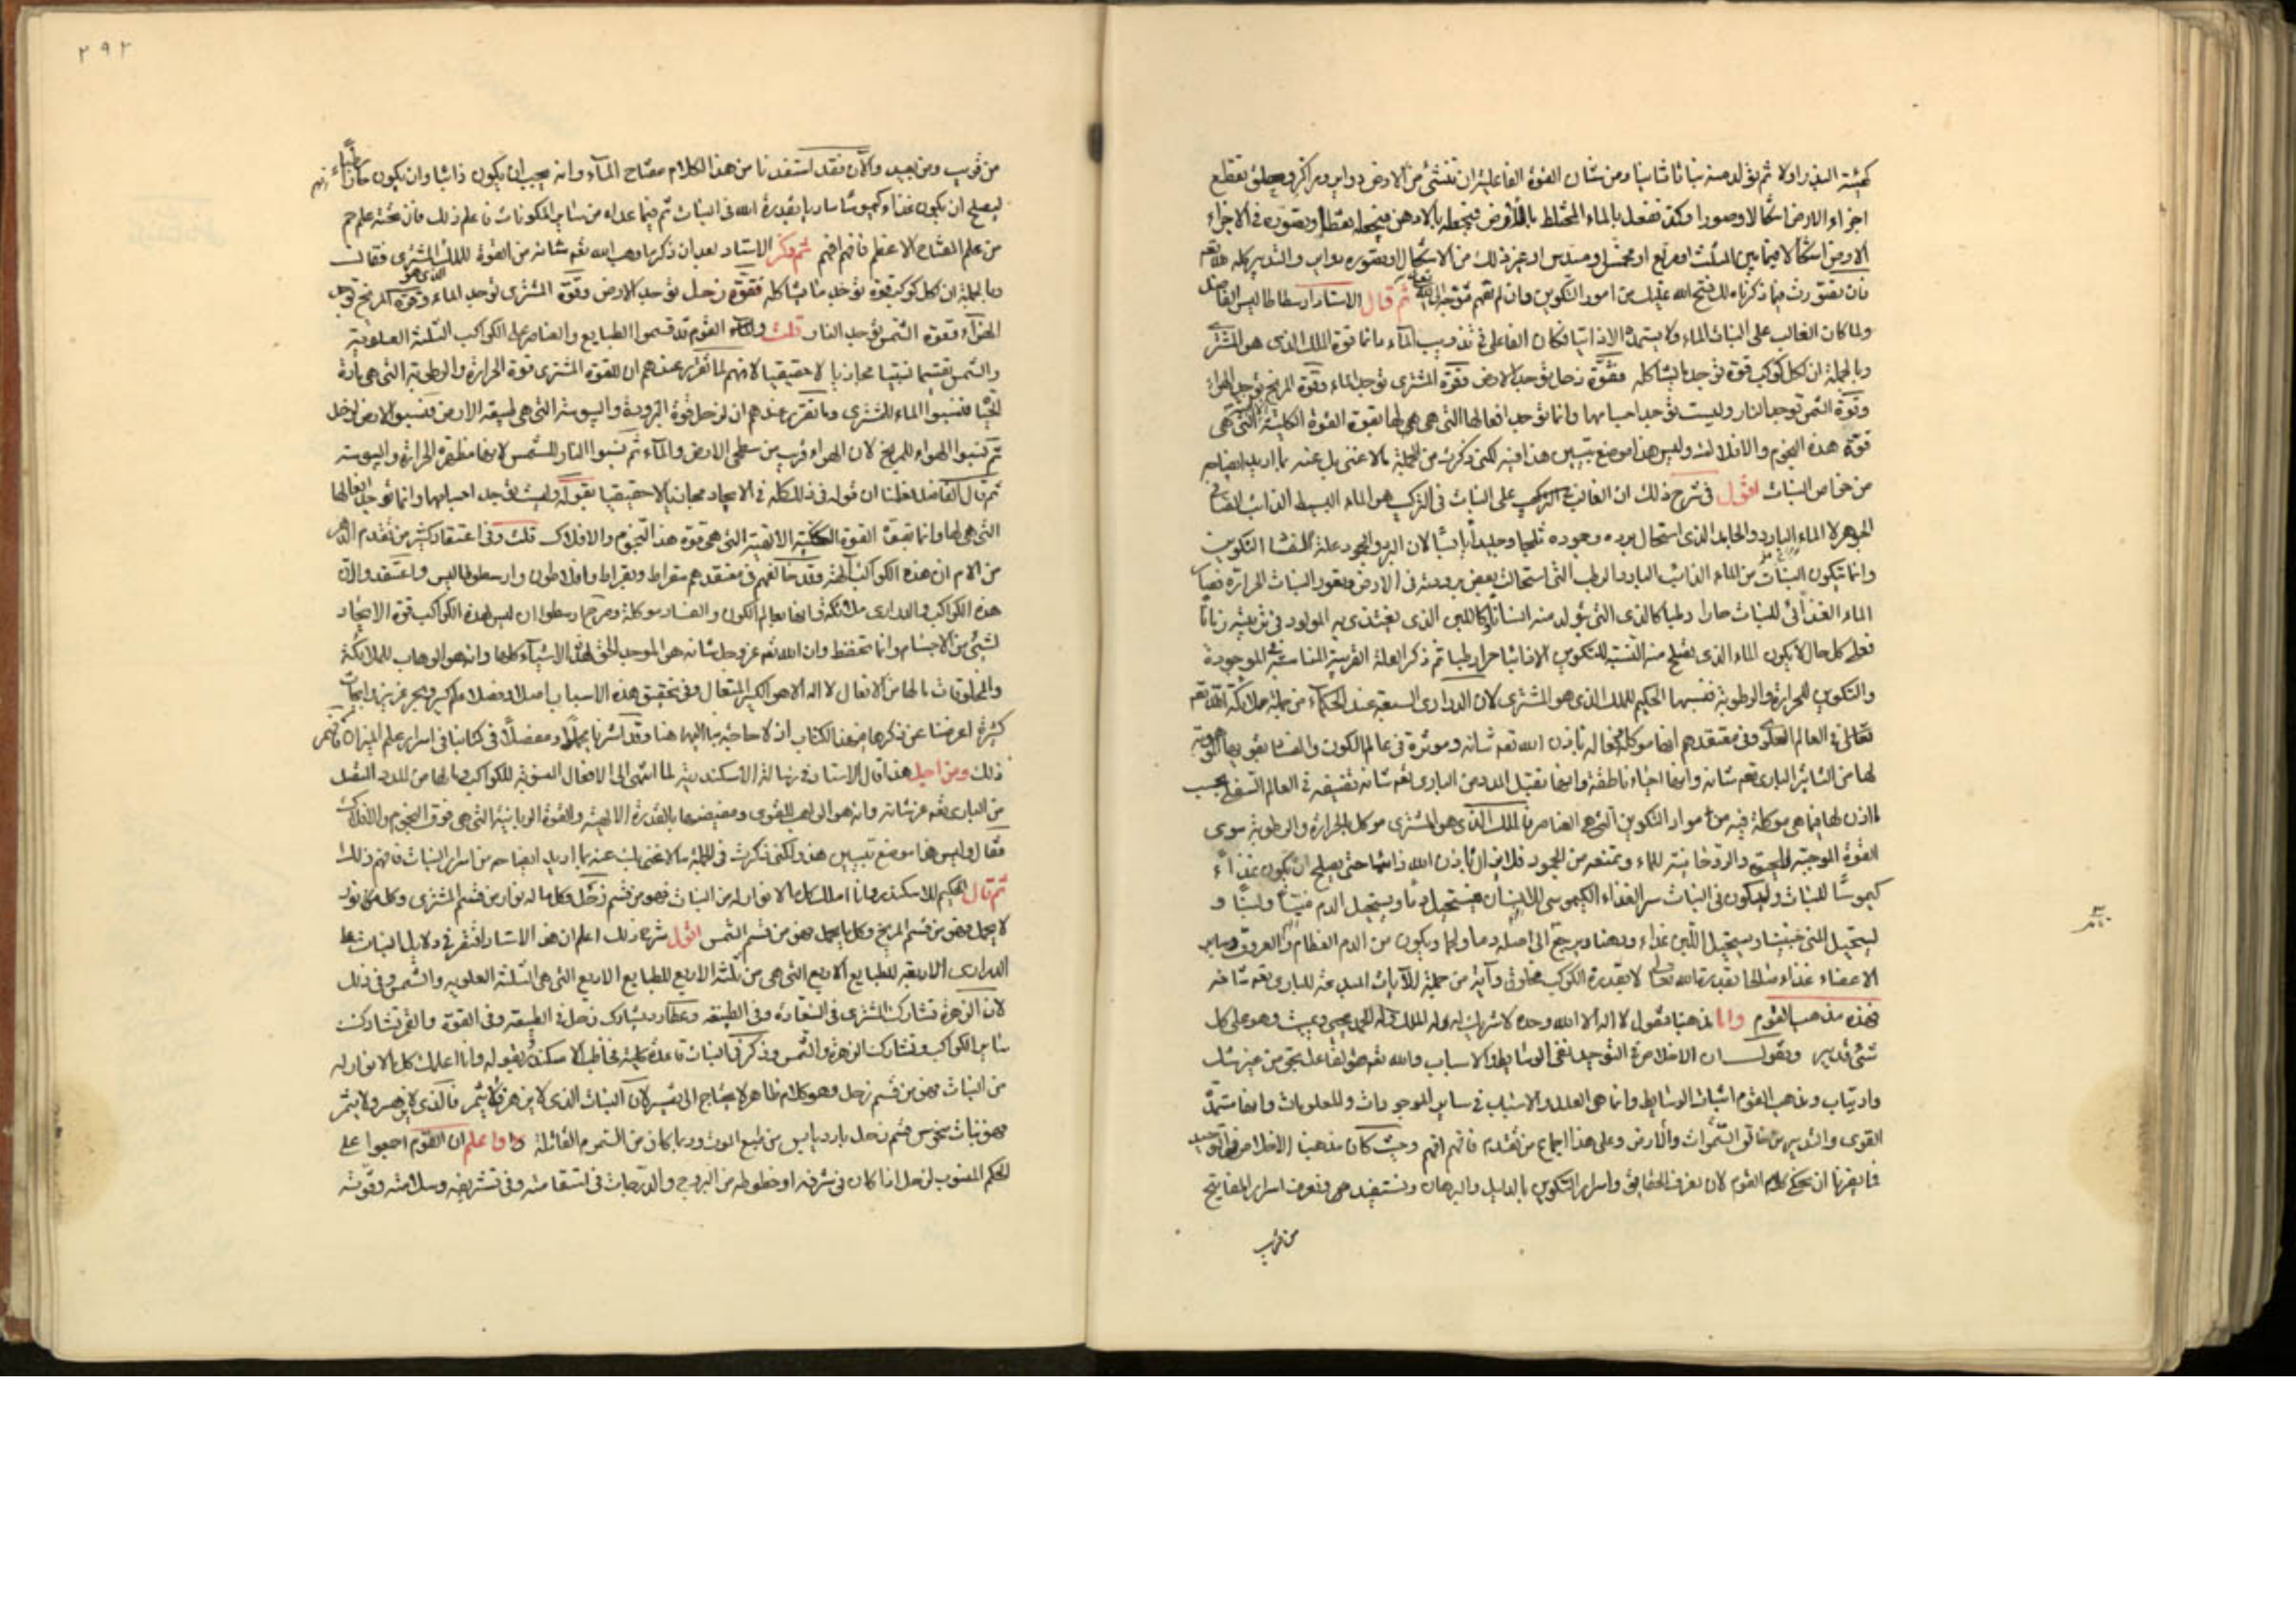 كهيئة البذر اولا ثم يتولد منه نباتا ثانيا ومن شان القوة الفاعلية ان تنشئ من الارض دواير ومراكز وتقطع
اجزاء الارض اشكالا وصورا وكذلك تفعل بالماء المختلط بالارض
الارض اشكالا فيما بين المثلث او مربع او مخمس او مسدس او غير ذلك من الاشكال
فان تصورت ما ذكرناه لك فتح الله عليك من امور التكوين وان لم تفهم ثم قال الاستاد ارسطاطاليس الفاضل
ولما كان الغالب على النبات الماء ولا يستمد الا ذائبا فكان الفاعل في تذويب الماء قوة الملك الذي هو المشتري
وبالجملة ان لكل كوكب قوة توجد ما يشاكله فقوة زحل توجد الارض وقوة المشتري توجد الماء وقوة المريخ توجد الهواء
وقوة الشمس توجد النار وليست توجد اجسامها وانما توجد افعالها التي هي لها بقوة القوة الكلية التي هي
فوق هذه النجوم والافلاك وليس هذا موضع تبيين هذا فيه لكني ذكرت من الجملة ما لا غنى بك عنه بما اريد ايضاحه
من خواص النبات اقول في شرح ذلك ان الغالب على النبات في التركيب هو الماء البسيط الذائب الصافي
الجوهر لا الماء البارد والجامد الذي استحال ببرده وجموده ثلجا وجليدا يابسا لان البرد والجمود علة لفساد التكوين
وانما يتكون النبات من الماء الذائب البارد الرطب التي استحالت بعض برودته في الارض
الماء الغذائي للنبات حارا رطبا كالذي يتولد منه انسانا وكاللبن الذي يغتذي به المولود في تربيته زمانا
فعلى كل حال لا يكون الماء الذي يصلح منه التكوين الا ذائبا حارا رطبا ثم ذكر العلة القريبة المناسبة الموجودة
والتكوين للحرارة والرطوبة فنسبها الحكيم للملك الذي هو المشتري لان الدراري السبعة عند الحكماء من جملة ملائكة الله تعم
تعالى في العالم العلوي وفي معتقدهم انها موكلة فعالة باذن الله تعم شانه ومؤثرة في عالم الكون والفساد
لها من التاثير الباري تعم شانه وانها احياء ناطقة وانها تقبل المدد من الباري تعم شانه تفيضه في العالم السفلي بحسب
ما اذن لها فيما هي موكلة فيه من مواد التكوين التي هي العناصر فالملك الذي هو المشتري موكل بالحرارة والرطوبة سوى
القوة الموجبة وتمنعه من الجمود فلا يزال باذن الله ذائبا حتى يصلح ان يكون غذاء
كيموسا للنبات وليكون في النبات سر الغذاء الكيموسي للانسان فيستحيل دما ويستحيل الدم منيا ولبنا و
يستحيل المني جنينا ويستحيل اللبن غذاء ودهنا ويرجع الى اصله دما ولحما ويكون من الدم العظام والعروق وساير
الاعضاء غذاء صالحا بقدرة الله تعالى لا بقدرة الكوكب مخلوق وآية من جملة الآيات المبدعة للباري تعم شانه
فهذه مذهب القوم واما مذهبنا فنقول لا اله الا الله وحده لا شريك له له الملك وله الحمد يحيي ويميت وهو على كل
شئ قدير ونقول ان الاخلاص في التوحيد نفي الوسايط والاسباب والله تعم هو الفاعل بحق من غير شك
وارتياب ومذهب القوم اثبات الوسايط وانما هي العلل والاسباب في ساير الموجودات والمعلومات وانها تستمد
القوى والتدبير من خالق السموات والارض وعلى هذا اجماع من تقدم فافهم افهم وحيث كان مذهبنا الاخلاص في التوحيد
فانصرنا ان نحكي كلام القوم لان نعرف الحقايق واسرار التكوين بالدليل والبرهان ونستفيد ونعرف اسرار المفاتيح
من قريب
٢٩٢
من قريب ومن بعيد والآن فقد استفدنا من هذا الكلام مفتاح الماء وانه يجب ان يكون ذائبا وان يكون حارا رطبا
ليصلح ان يكون غذاء كيموسا ساريا بقدرة الله في النبات ثم فيما عداه من ساير المكونات فاعلم ذلك فان تحته علم جم
من علم المفتاح الاعظم فافهم افهم ثم ذكر الاستاد بعد ان ذكر ما وهب الله تعم شانه من القوة للملك المشتري فقال
وبالجملة ان لكل كوكب قوة توجد ما يشاكله فقوة زحل توجد الارض وقوة المشتري توجد الماء وقوة المريخ توجد
الهواء وقوة الشمس توجد النار قلت القوم قد قسموا الطبايع والعناصر على الكواكب الثلثة العلوية
والشمس تقسيما نسبيا مجازيا لا حقيقيا لانهم لما تقرر عندهم ان للقوة المشتري قوة الحرارة والرطوبة التي هي مادة
الحيا فنسبوا الماء للمشتري وما تقرر عندهم ان لزحل قوة البرودة واليبوسة التي هي طبيعة الارض فنسبوا الارض لزحل
ثم نسبوا الهواء للمريخ لان الهواء قريب من سطحي الارض والماء ثم نسبوا النار للشمس لانها مظهرة الحرارة واليبوسة
ثم قال الفاضل اعلمنا ان قوله في ذلك كله في الايجاد مجازيا لا حقيقيا بقوله وليست توجد اجسامها وانما توجد افعالها
التي هي لها وانما بقوة القوة الكلية الالهية التي هي فوق هذه النجوم والافلاك قلت وفي اعتقاد كثير من تقدم الدهر
من الامم ان هذه الكواكب آلهة وقد خالفهم في معتقدهم سقراط وبقراط وافلاطون وارسطوطاليس واعتقدوا ان
هذه الكواكب والدراري ملائكة وانها بعالم الكون والفساد موكلة وصرح ارسطوا ان ليس لهذه الكواكب قوة الايجاد
لشئ من الاجسام وانما تحفظ وان الله تعم عز وجل شانه هو الموجد الحق لهذه الاشياء كلها وانه هو الوهاب للملائكة
والمخلوقات ما لها من الافعال لا اله الا هو الكبير المتعال وفي تحقيق هذه الاسباب
كثيرة اعرضنا عن ذكرها في هذا الكتاب اذ لا حاجة بنا اليها هنا وقد اشرنا مجملا ومفصلا في كتابنا في اسرار علم الميزان فافهم
ذلك ومن اجل هذا قال الاستاد في رسالة الاسكندرية لما انتهى الى الافعال المنسوبة للكواكب وما لها من المدد المتصل
من الباري تعم عز شانه وانه هو الواهب للقوى ومفيضها بالقدرة الالهية والقوة الربانية التي هي فوق النجوم والافلاك
فقال وليس هنا موضع تبيين هذا ولكني ذكرت في الجملة ما لا غنى بك عنه بما اريد ايضاحه من اسرار النبات فافهم ذلك
ثم قال الحكيم للاسكندر وانا اعلمك كل ما لا نوار له من النبات فهو من قسم زحل وكل ما له نوار من قسم المشتري وكل ما نور
لا يحمل فهو من قسم المريخ وكل ما يحمل فهو من قسم الشمس اقول شرح ذلك اعلم ان هذا الاستاد اقتصر في دلايل النبات
الدراري الاربعة للطبايع الاربع التي هي الثلثة العلوية والشمس وفي ذلك
لان الزهرة تشارك المشتري في السعادة وفي الطبيعة وعطارد يشارك زحل في الطبيعة وفي القوة والقمر تشارك
ساير الكواكب وتشارك الزهرة والشمس وذكر في النبات قاعدة كلية فخاطب الاسكندر بقوله وانا اعلمك كل ما لا نوار له
من النبات فهو من قسم زحل وهو كلام ظاهر لا يحتاج الى تفسير لان النبات الذي لا يزهر ولا يثمر فالذي لا يزهر ولا يثمر
فهو نبات نحوس قسم زحل بارد يابس من طبع الموت وربما كان من السموم القاتلة واعلم ان القوم اجمعوا على
الحكم المنسوب لزحل اذا كان في شرفه او حظوظه من البروج والدرجات في استقامته وفي تشريقه وسلامته وقوته